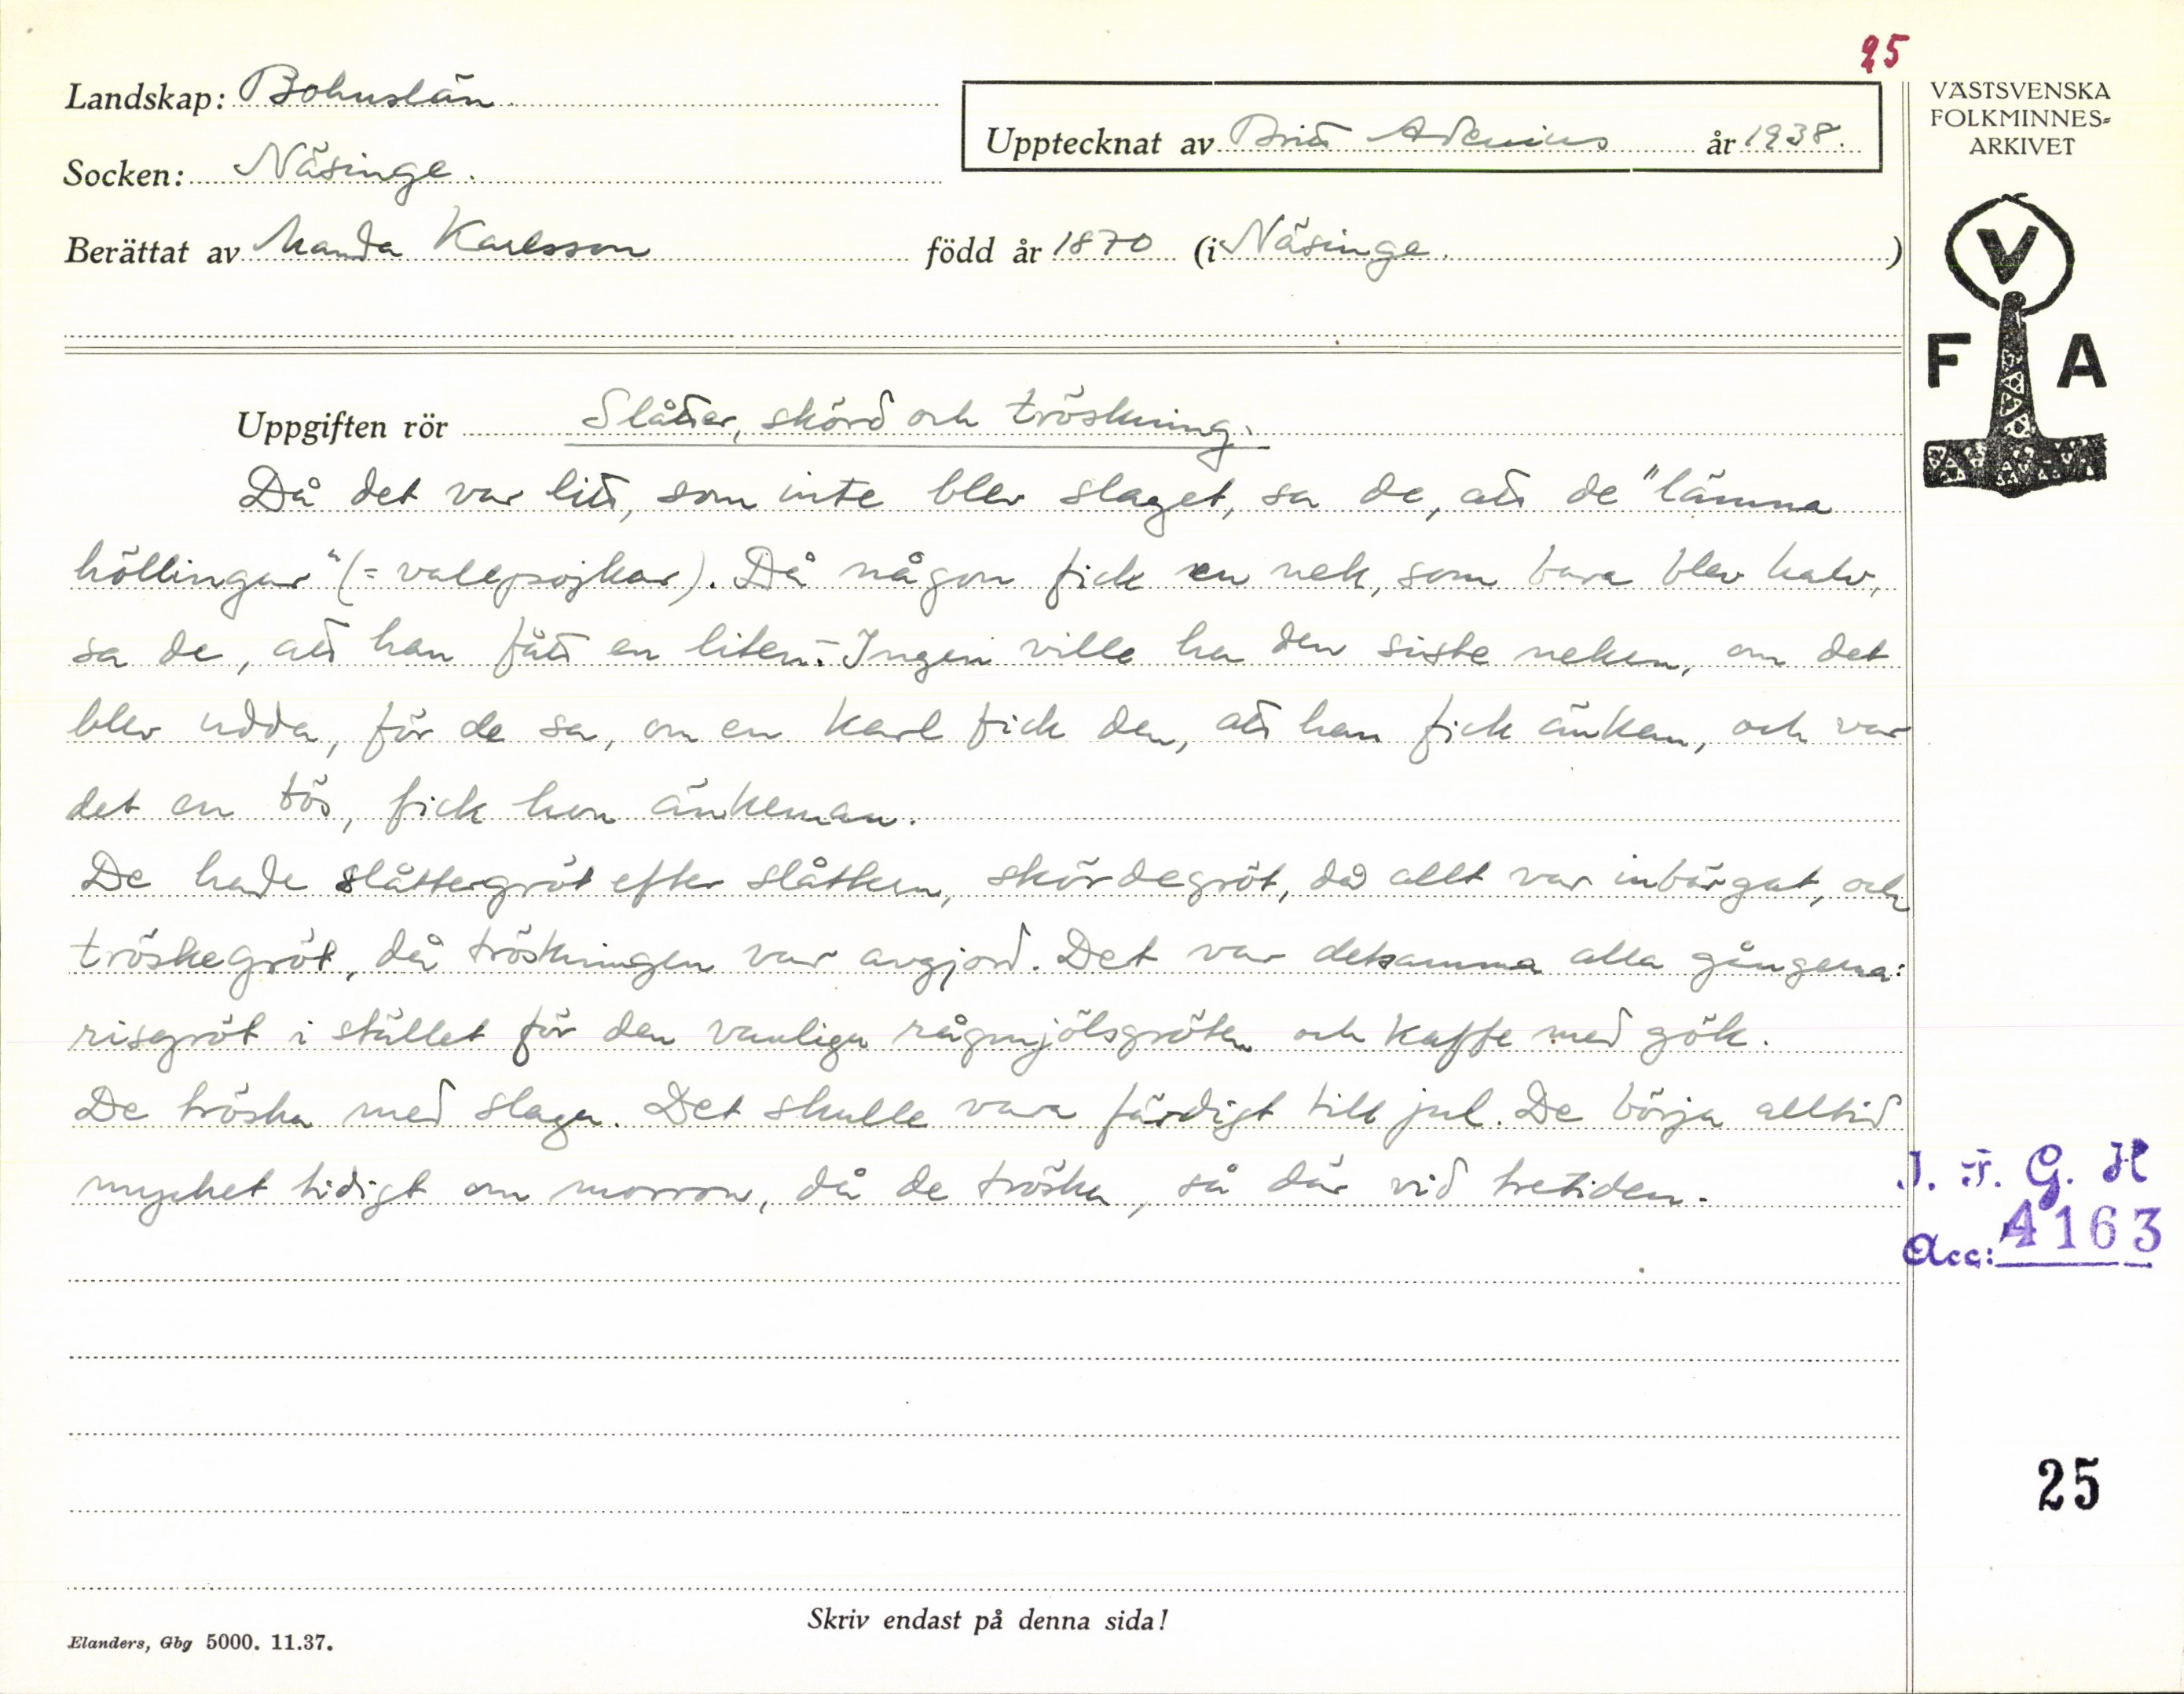 25
Landskap: Bohuslän.
Upptecknat av Britt Adenius år 1938.
VÄSTSVENSKA
FOLKMINNES-
ARKIVET
Socken: Näsinge.
Berättat av Manda Karlsson född år 1870 (i Näsinge. )
V
F A
Uppgiften rör Slåtter, skörd och tröskning.
Då det var litt, som inte blev slaget, sa de, att de "lämna
höllingar" (= vallpojkar). Då någon fick en nek, som bara blev halv,
sa de, att han fått en liten. - Ingen ville ha den siste neken, om det
blev udda, för de sa, om en karl fick den, att han fick änkan, och var
det en tös, fick hon änkeman.
De hade slåttergröt efter slåtten, skördegröt, då allt var inbärgat, och
tröskegröt, då tröskningen var avgjord. Det var detsamma alla gångerna:
risgröt i stället för den vanliga rågmjölsgröten och kaffe med gök.
De tröska med slaga. Det skulle vara färdigt till jul. De börja alltid
mycket tidigt om morron, då de tröska, så där vid tretiden.
I. F. G. H
Acc: 4163
25
Skriv endast på denna sida!
Elanders, Gbg 5000. 11.37.